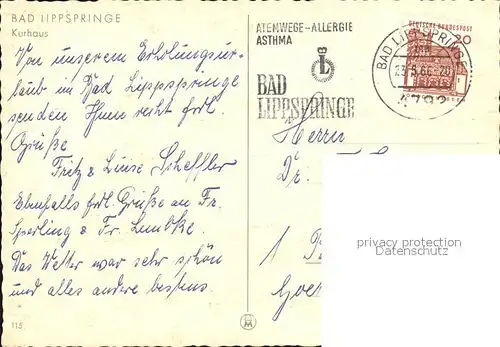 BAD LIPPSPRINGE
Kurhaus
Von unserem Erholungsur-
laub im Bad Lippspringe
senden Ihnen recht frdl.
Grüße
Fritz & Luise Scheffler
Ebenfalls frdl. Grüße an Fr.
Sperling & Fr. Lembke.
Das Wetter war sehr schön
und alles andere bestens.
115
ATEMWEGE-ALLERGIE
ASTHMA
L
BAD
LIPPSPRINGE
DEUTSCHE BUNDESPOST
20
BAD LIPPSPRINGE
23.5.66-20
4792
Herrn
Dr.
1
privacy protection
Datenschutz